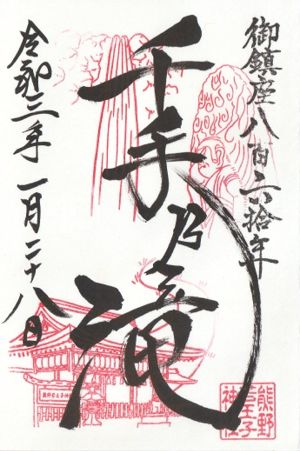 御鎮座八百六拾年
千手乃滝
令和三年一月二十八日
熊野
皇王子
神社